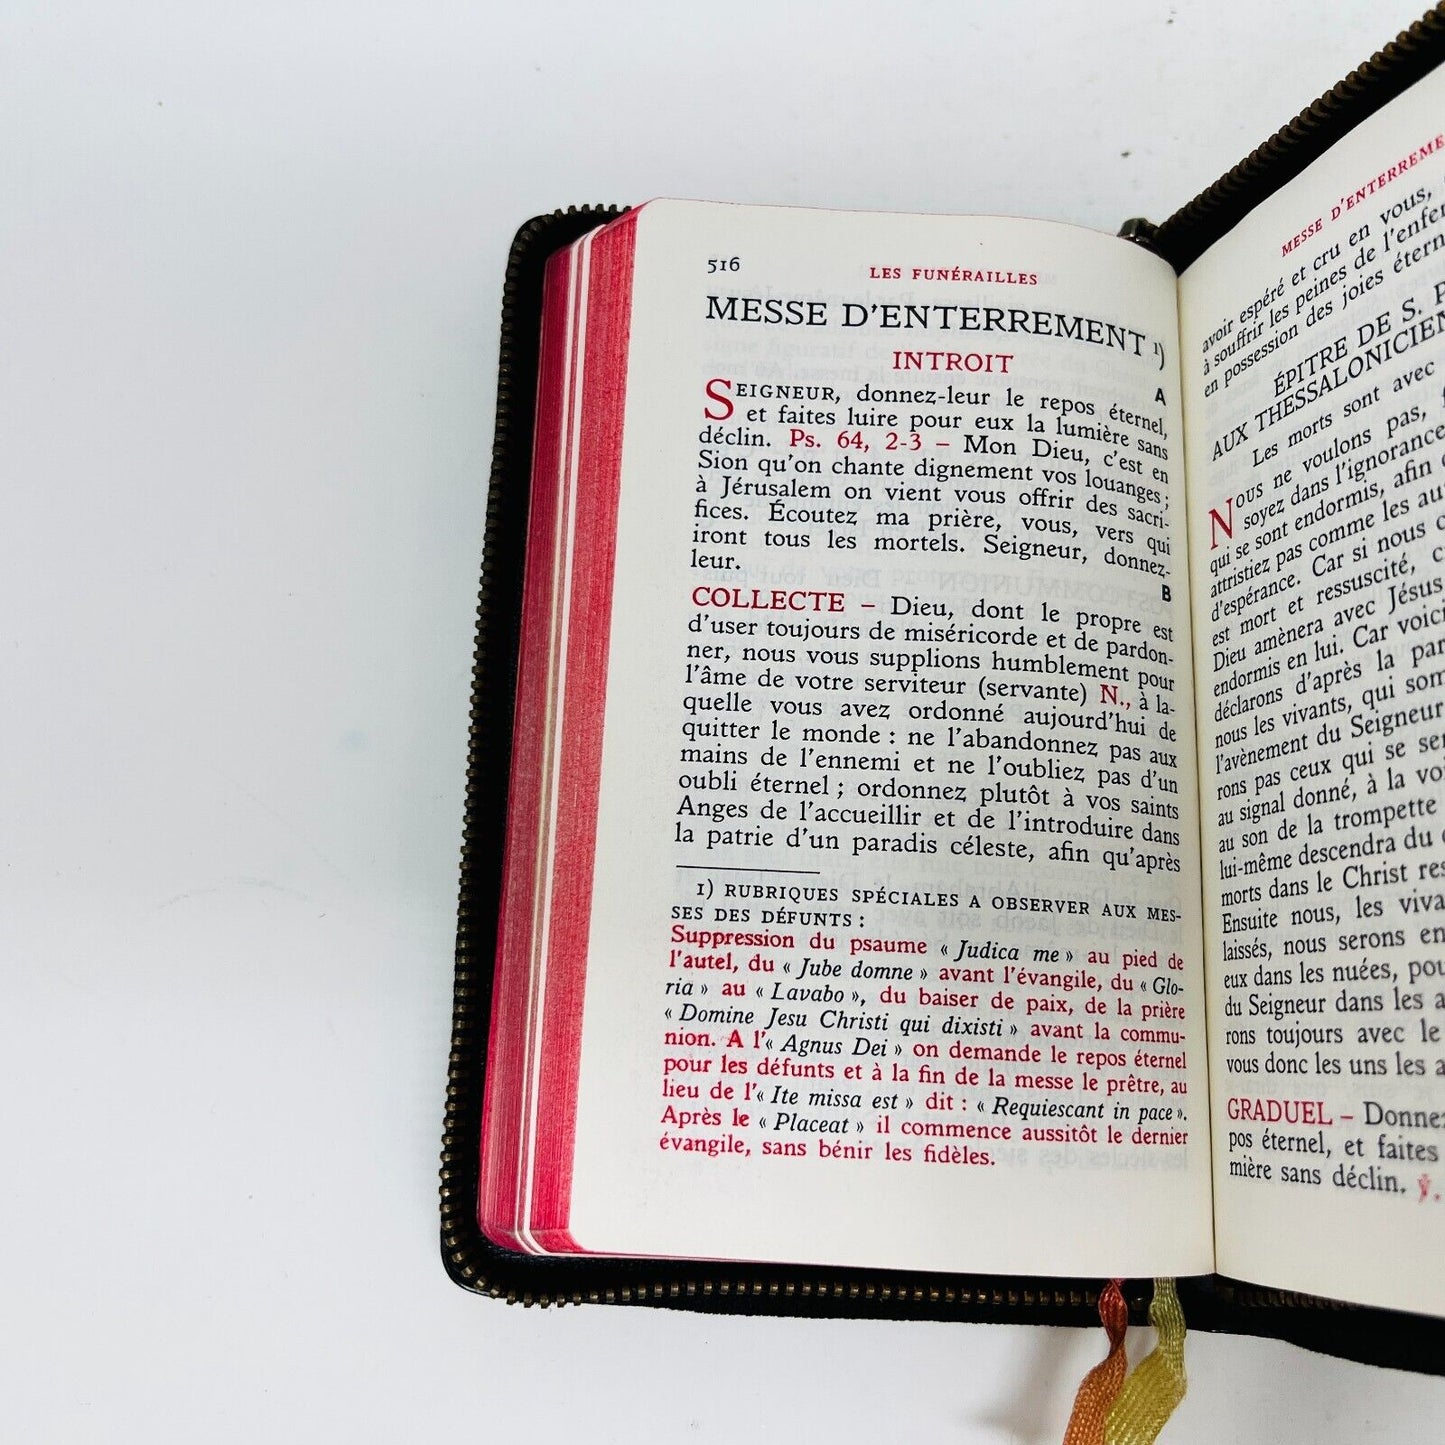 516
LES FUNÉRAILLES
MESSE D'ENTERREMENT 1)
INTROIT
A
SEIGNEUR, donnez-leur le repos éternel,
et faites luire pour eux la lumière sans
déclin. Ps. 64, 2-3 – Mon Dieu, c'est en
Sion qu'on chante dignement vos louanges ;
à Jérusalem on vient vous offrir des sacri-
fices. Écoutez ma prière, vous, vers qui
iront tous les mortels. Seigneur, donnez-
leur.
B
COLLECTE – Dieu, dont le propre est
d'user toujours de miséricorde et de pardon-
ner, nous vous supplions humblement pour
l'âme de votre serviteur (servante) N., à la-
quelle vous avez ordonné aujourd'hui de
quitter le monde : ne l'abandonnez pas aux
mains de l'ennemi et ne l'oubliez pas d'un
oubli éternel ; ordonnez plutôt à vos saints
Anges de l'accueillir et de l'introduire dans
la patrie d'un paradis céleste, afin qu'après
1) RUBRIQUES SPÉCIALES A OBSERVER AUX MES-
SES DES DÉFUNTS :
Suppression du psaume « Judica me » au pied de
l'autel, du « Jube domne » avant l'évangile, du « Glo-
ria » au « Lavabo », du baiser de paix, de la prière
« Domine Jesu Christi qui dixisti » avant la commu-
nion. A l'« Agnus Dei » on demande le repos éternel
pour les défunts et à la fin de la messe le prêtre, au
lieu de l'« Ite missa est » dit : « Requiescant in pace ».
Après le « Placeat » il commence aussitôt le dernier
évangile, sans bénir les fidèles.
MESSE D'ENTERREME
avoir espéré et cru en vous,
à souffrir les peines de l'enfer
en possession des joies étern
ÉPITRE DE S. P
AUX THESSALONICIEN
Les morts sont avec
NOUS ne voulons pas,
soyez dans l'ignorance
qui se sont endormis, afin
attristiez pas comme les au
d'espérance. Car si nous
est mort et ressuscité,
Dieu amènera avec Jésus,
endormis en lui. Car voici
déclarons d'après la par
nous les vivants, qui som
l'avènement du Seigneur
rons pas ceux qui se ser
au signal donné, à la voi
au son de la trompette
lui-même descendra du
morts dans le Christ res
Ensuite nous, les viva
laissés, nous serons en
eux dans les nuées, pou
du Seigneur dans les a
rons toujours avec le
vous donc les uns les a
GRADUEL – Donnez
pos éternel, et faites
mière sans déclin. ℣.